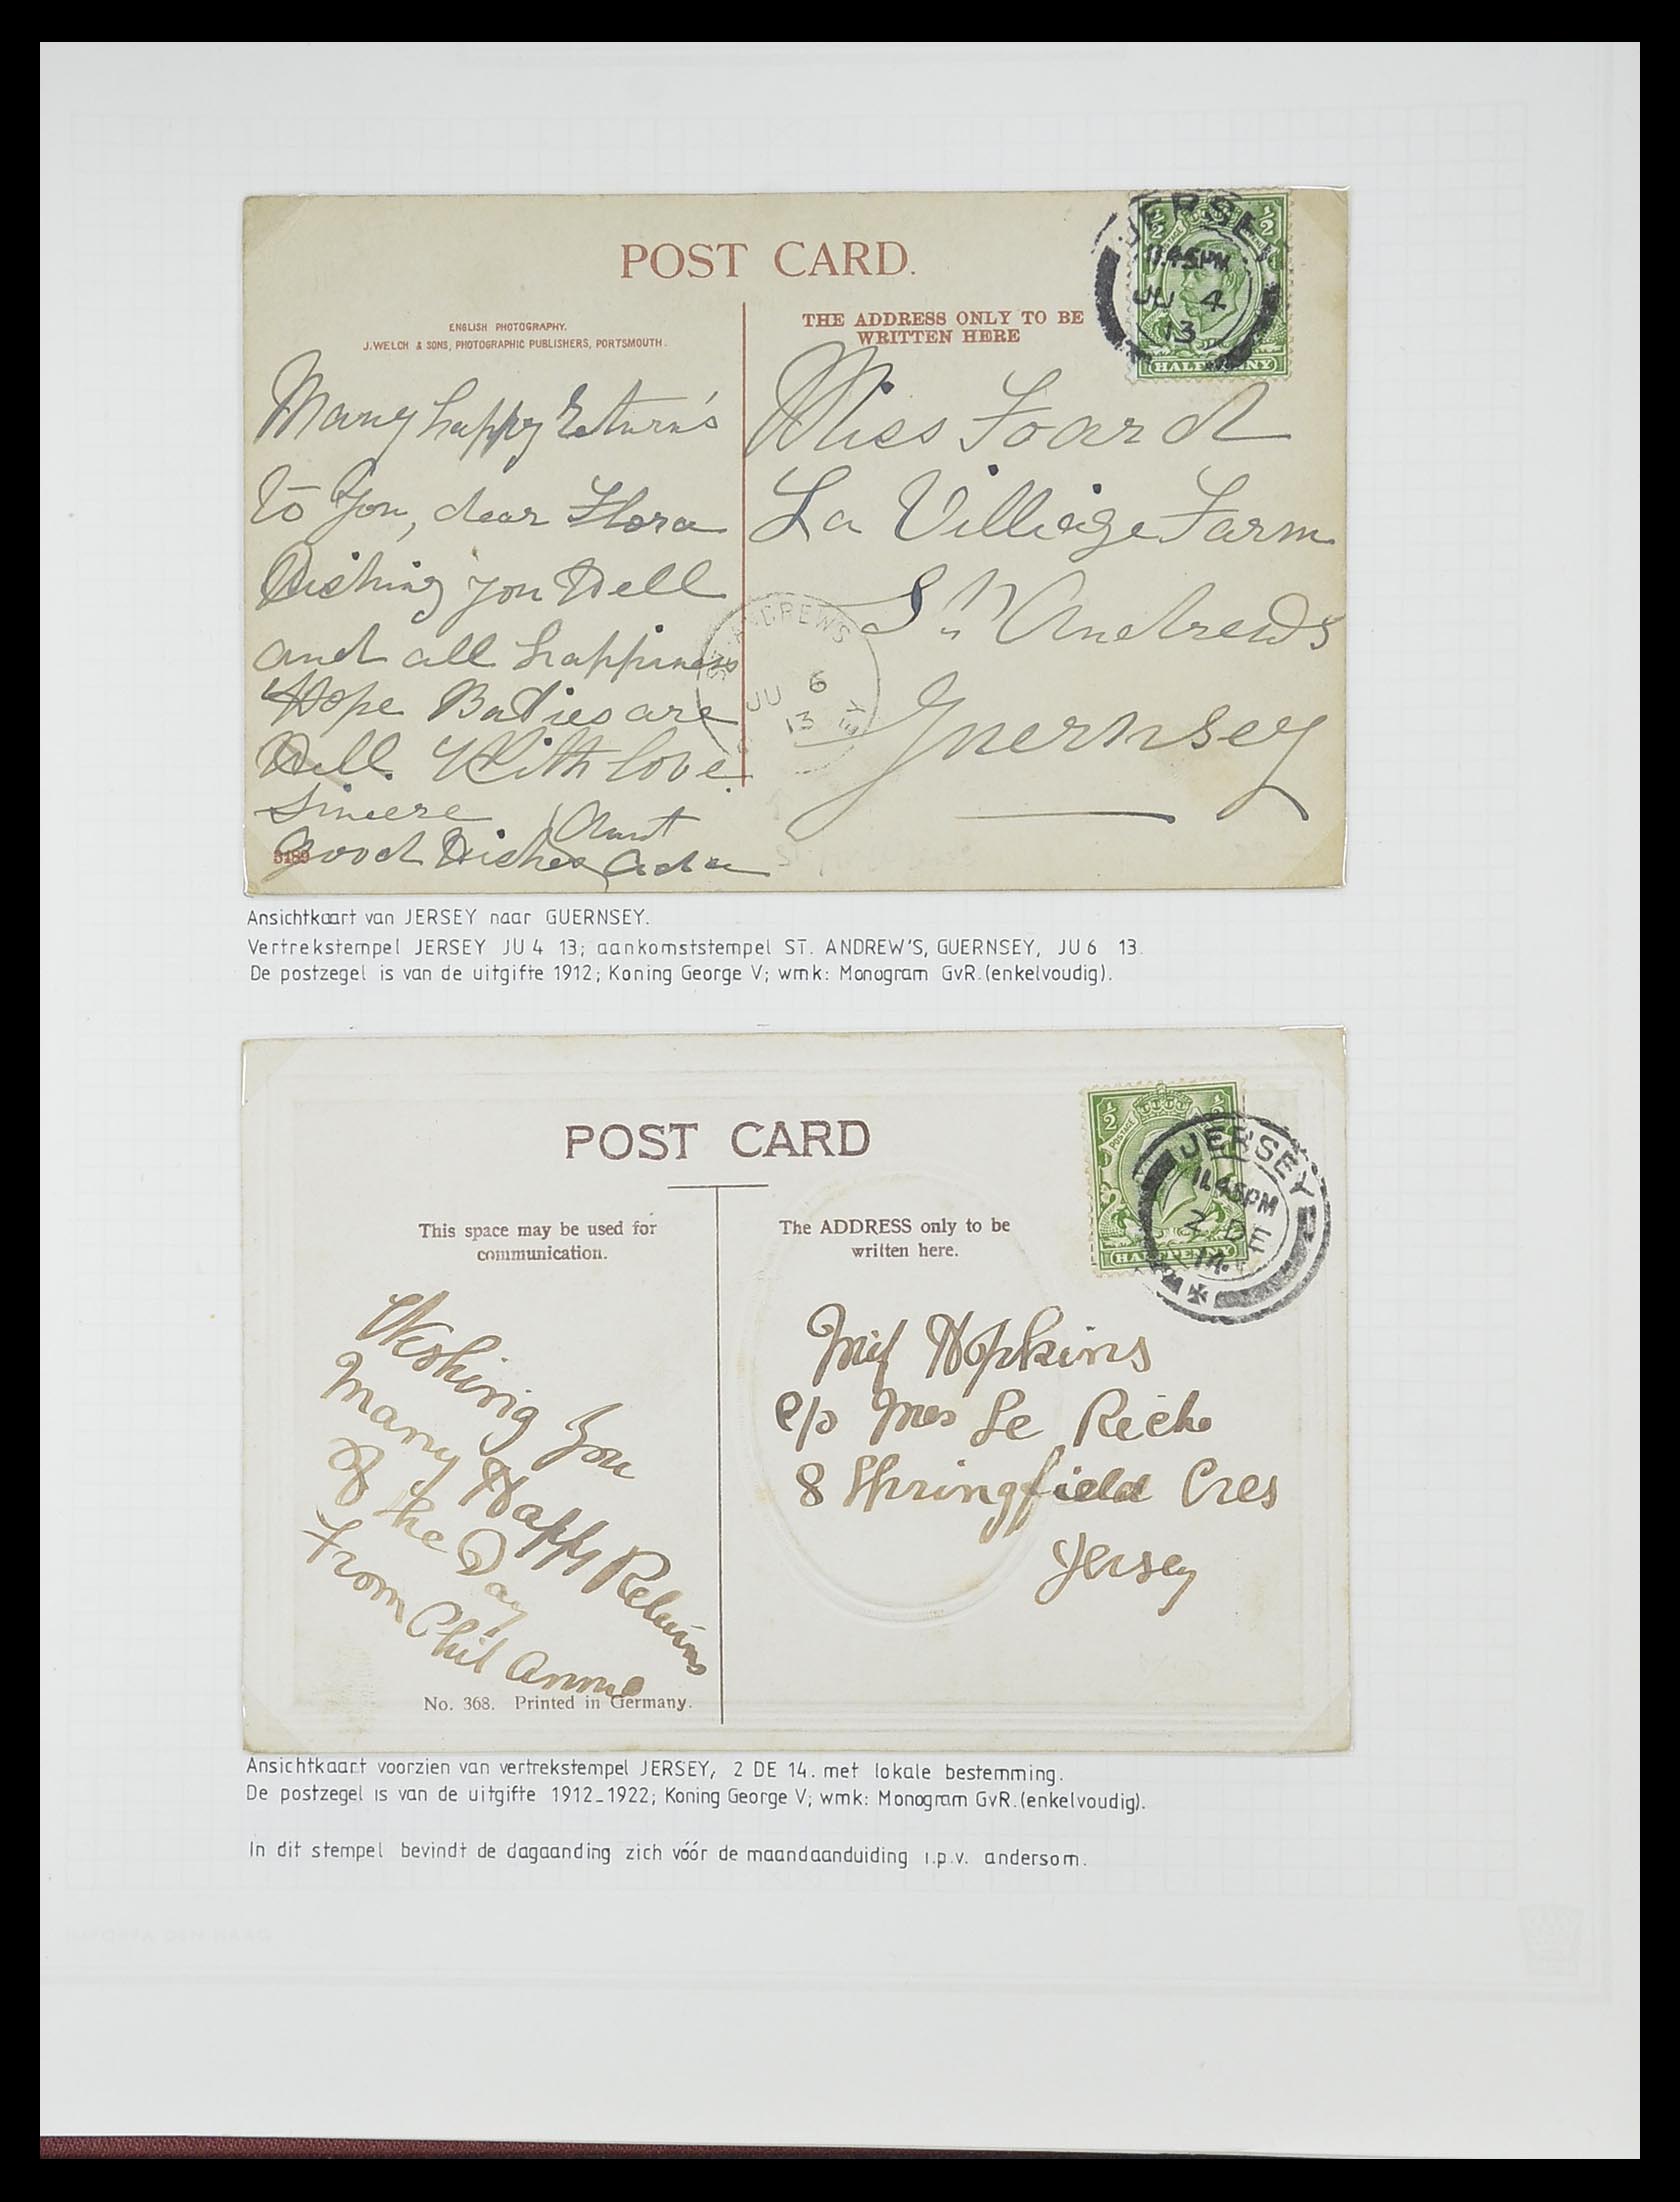 POST CARD.
ENGLISH PHOTOGRAPHY.
J. WELCH & SONS, PHOTOGRAPHIC PUBLISHERS, PORTSMOUTH.
THE ADDRESS ONLY TO BE
WRITTEN HERE
JERSEY
11.45PM
JU 4
13
HALFPENNY
Many happy Return's
to You, dear Flora
Wishing you Well
and all happiness
Hope Babies are
Well. With love
Sincere
Good Wishes Aunt
Ada
3189
Miss Foard
La Villiage Farm
St Andrews
Guernsey
ST. ANDREWS
JU 6
13
Ansichtkaart van JERSEY naar GUERNSEY.
Vertrekstempel JERSEY JU 4 13; aankomststempel ST. ANDREW'S, GUERNSEY, JU 6 13.
De postzegel is van de uitgifte 1912; Koning George V; wmk: Monogram GvR.(enkelvoudig).
POST CARD
This space may be used for
communication.
The ADDRESS only to be
written here.
POSTAGE
HALFPENNY
JERSEY
11.45PM
2 DE
14
Wishing You
Many Happy Returns
Of the Day
From Phil Annie
No. 368. Printed in Germany.
Miss Hopkins
c/o Mrs Le Riche
8 Springfield Cres
Jersey
Ansichtkaart voorzien van vertrekstempel JERSEY, 2 DE 14. met lokale bestemming.
De postzegel is van de uitgifte 1912-1922; Koning George V; wmk: Monogram GvR.(enkelvoudig).
In dit stempel bevindt de dagaanding zich vóór de maandaanduiding i.p.v. andersom.